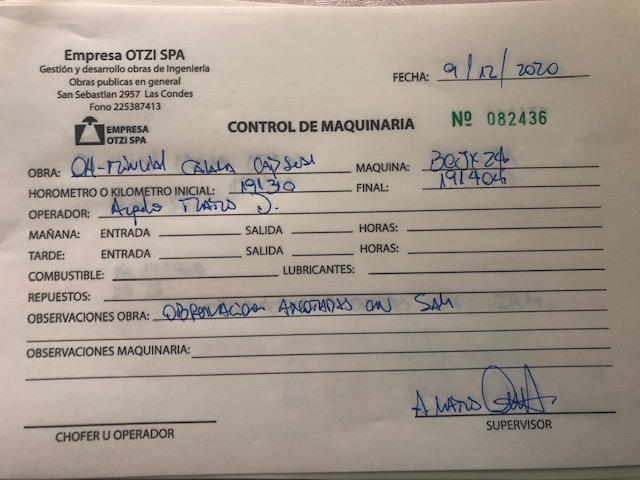 Empresa OTZI SPA
Gestión y desarrollo obras de Ingeniería
Obras publicas en general
San Sebastian 2957 Las Condes
Fono 225387413
FECHA: 9/12/2020
EMPRESA
OTZI SPA
CONTROL DE MAQUINARIA
Nº 082436
OBRA: MAQUINA:
HOROMETRO O KILOMETRO INICIAL: 19130 FINAL: 191404
OPERADOR:
MAÑANA: ENTRADA SALIDA HORAS:
TARDE: ENTRADA SALIDA HORAS:
COMBUSTIBLE: LUBRICANTES:
REPUESTOS:
OBSERVACIONES OBRA: ANOTADAS
OBSERVACIONES MAQUINARIA:
CHOFER U OPERADOR
SUPERVISOR